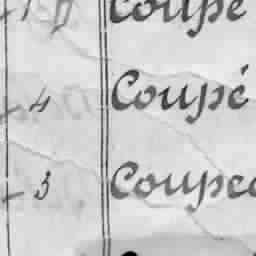 Coupé
4 Coupé
3 Coupe